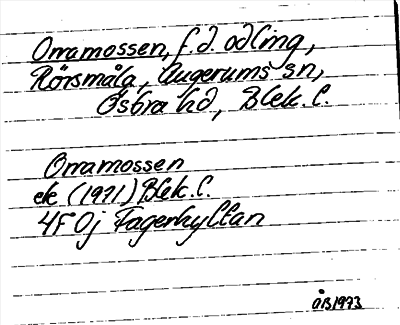 Orramossen, f.d. odling,
Rörsmåla, Augerums sn,
Östra hd, Blek. l.
Orramossen
ek (1971) Blek. l.
4F 0j Fagerhyltan
ÅB 1973